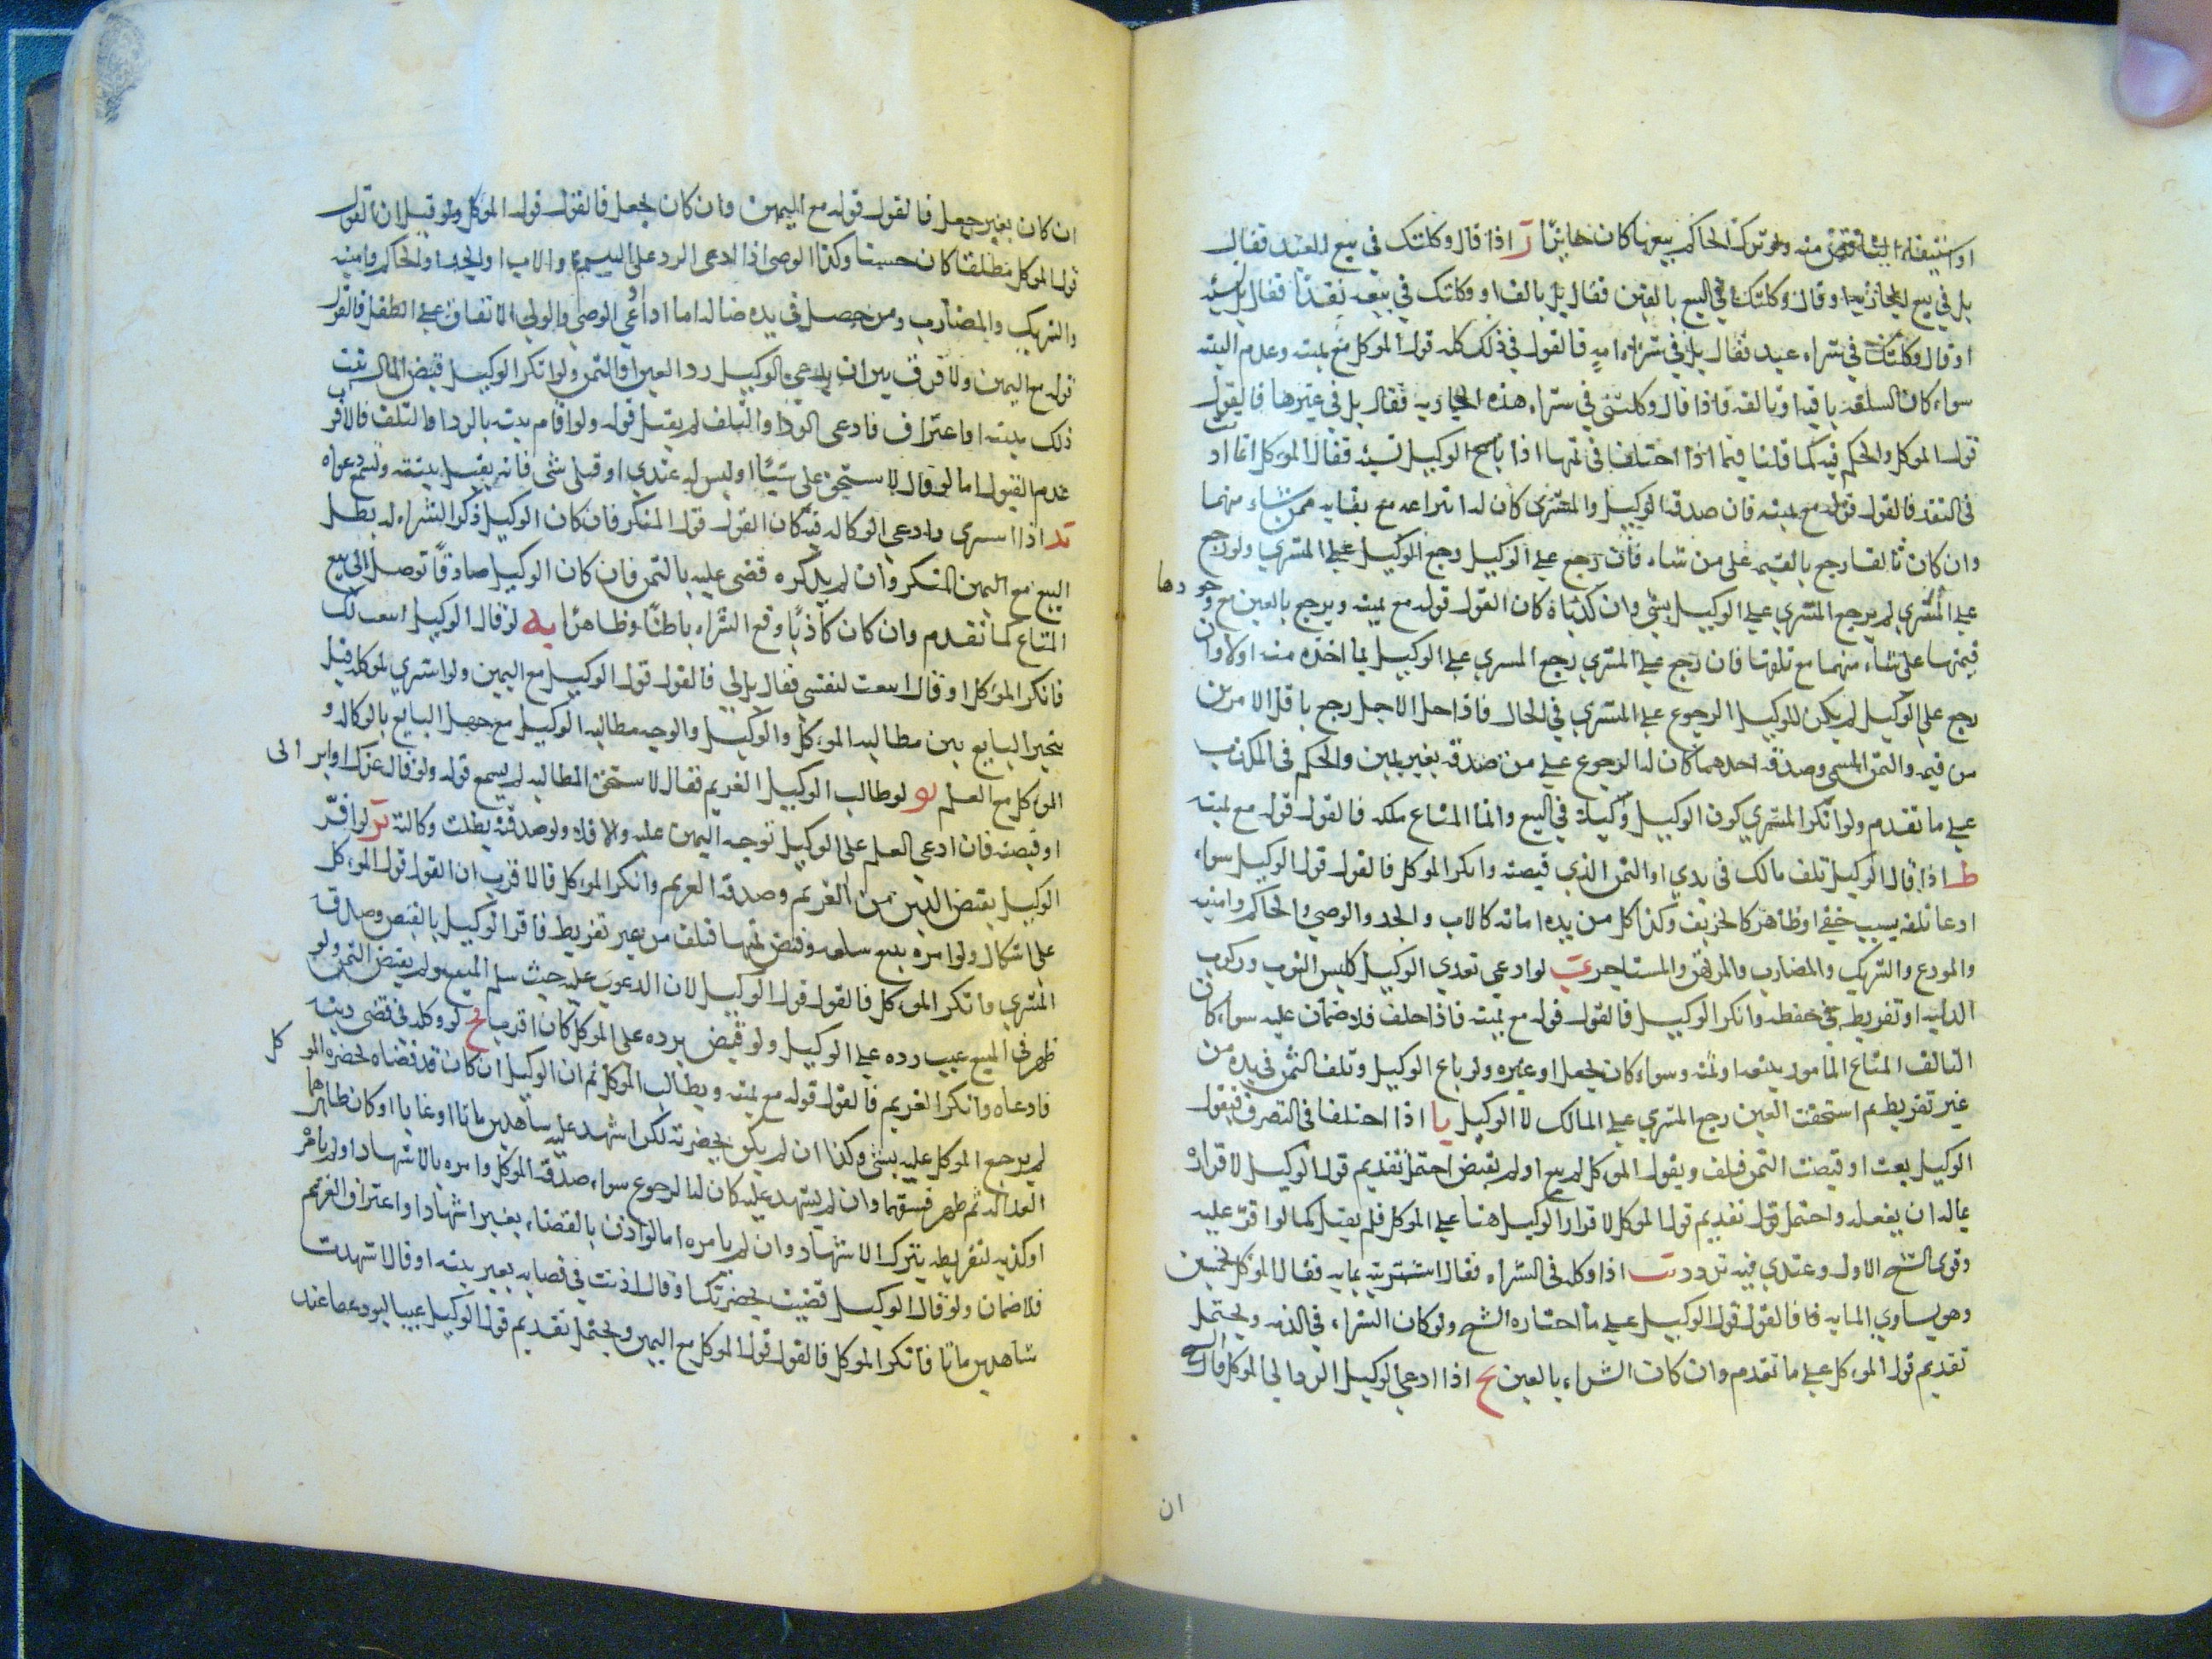 او استيفاء الثمن منه ولو ترك الحاكم بيعها كان جائزا ز اذا قال وكلتك في بيع العبد فقال
بل في بيع الجارية او قال وكلتك في البيع بالفين فقال بل بالف او وكلتك في بيعه نقدا فقال بل نسيه
او قال وكلتك في شراء عبد فقال بل في شراء امه فالقول في ذلك كله قول الموكل مع يمينه وعدم البينه
سواء كان السلعه باقيه او تالفه فاذا قال وكلتني في شراء هذه الجاريه فقال بل في غيرها فالقول
قول الموكل والحكم فيه كما قلنا فيما اذا اختلفا في ثمنها اذا باع الوكيل نسيه فقال الموكل انما اذنت
في النقد فالقول قوله مع يمينه فان صدقه الوكيل والمشتري كان له انتزاعه مع بقايه ممن شاء منهما
وان كان تالفا رجع بالقيمه على من شاء فان رجع على الوكيل رجع الوكيل على المشتري ولو رجع
على المشتري لم يرجع المشتري على الوكيل بشي وان كذباه كان القول قوله مع يمينه ويرجع بالعين مع وجودها
قيمتها على من شاء منهما مع تلفها فان رجع على المشتري رجع المسري على الوكيل بما اخذه منه اولا وان
رجع على الوكيل لم يكن للوكيل الرجوع على المشتري في الحال فاذا حل الاجل رجع باقل الامرين
من قيمه والثمن المسمى وصدقه احدهما كان له الرجوع على من صدقه بغير يمين والحكم في المكذب
على ما تقدم ولو انكر المشتري كون الوكيل وكيلا في البيع وانما المتاع ملكه فالقول قوله مع يمينه
ط اذا قال الوكيل تلف مالك في يدي او الثمن الذي قبضته وانكر الموكل فالقول قول الوكيل سواء
ادعا تلفه بسبب خفي او ظاهر كالحريق وكذا كل من يده امانه كالاب والجد والوصي والحاكم وامينه
والمودع والشريك والمضارب والمرتهن والمستاجر ي لو ادعي تعدي الوكيل كلبس الثوب وركوب
الدابه او تفريطه في حفظه وانكر الوكيل فالقول قوله مع يمينه فاذا حلف فلا ضمان عليه سواء كان
التالف المتاع المامور ببيعه او ثمنه وسواء كان بجعل او غيره ولو باع الوكيل وتلف الثمن في يده من
غير تفريط ثم استحقت العين رجع المشتري على المالك لا الوكيل يا اذا اختلفا في التصرف فيقول
الوكيل بعت او قبضت الثمن فتلف ويقول الموكل لم يبع او لم يقبض احتمل تقديم قول الوكيل لاقراره
بماله ان يفعله واحتمل تقديم قول الموكل لاقرار الوكيل هنا على الموكل فلم يقبل كما لو اقر عليه
وقوى الشيخ الاول وعندي فيه تردد يب اذا وكله في الشراء فقال اشتريته بمايه فقال الموكل بخمسين
وهو يساوي المايه فالقول قول الوكيل على ما اختاره الشيخ ولو كان الشراء في الذمه ويحتمل
تقديم قول الموكل على ما تقدم وان كان الشراء بالعين يج اذا ادعي الوكيل الرد الي الموكل فالشيخ
ان
ان كان بغير جعل فالقول قوله مع اليمين وان كان بجعل فالقول قول الموكل ولو قيل ان القول
قول الموكل مطلقا كان حسنا وكذا الوصي اذا ادعى الرد على اليتيم والاب او الجد او الحاكم وامينه
والشريك والمضارب ومن حصل في يده ضاله اما ادعي الوصي او الولي الانفاق على الطفل فالقول
قوله مع اليمين ولا فرق بين ان يدعي الوكيل رد العين او الثمن ولو انكر الوكيل قبض المال ثم ثبت
ذلك ببينه او اعتراف فادعى الرد او التلف لم يقبل قوله ولو اقام بينه بالرد او التلف فالاقرب
عدم القبول اما لو قال لا يستحق علي شيئا او ليس له عندي او قبلي شي فانه يقبل بينته وتسمع دعواه
يد اذا اسرى وادعي الوكاله فيه كان القول قول المنكر فان كان الوكيل ذكر الشراء له بطل
البيع مع اليمين المنكر وان لم يذكره قضى عليه بالثمن فان كان الوكيل صادقا توصل الى بيع
المتاع كما تقدم وان كان كاذبا وقع الشراء باطنا وظاهرا يه لو قال الوكيل ابتعت لك
فانكر الموكل او قال ابتعت لنفسي فقال بل لي فالقول قول الوكيل مع اليمين ولو اشتري لموكله قيل
يتخير البايع بين مطالبه الموكل والوكيل والوجه مطالبه الوكيل مع جهل البايع بالوكاله و
الموكل مع العلم يو لو طالب الوكيل الغريم فقال لا تستحق المطالبه لم يسمع قوله ولو قال عزلك او ابرا لى
او قبضه فان ادعي العلم على الوكيل توجه اليمين عليه والا فلا ولو صدقه بطلت وكالته يز لو اقر
الوكيل بقبض الدين من الغريم وصدقه الغريم وانكر الموكل فالاقرب ان القول قول الموكل
على اشكال ولو امره ببيع سلعه وقبض ثمنها فتلف من غير تفريط فاقر الوكيل بالقبض وصدقه
المشتري وانكر الموكل فالقول قول الوكيل لان الدعوى عليه حيث سلم المبيع ولم يقبض الثمن ولو
ظهر في المبيع عيب رده على الوكيل ولو قيل برده على الموكل كان اقرب يح لو وكله في قضى دينه
فادعاه وانكر الغريم فالقول قوله مع يمينه ويطالب الموكل ثم ان الوكيل ان كان قد قضاه بحضره الموكل
لم يرجع الموكل عليه بشي وكذا ان لم يكن بحضرته لكن اشهد عليه شاهدين ماتا او غابا او كان ظاهرهما
العداله ثم ظهر فسقهما وان لم يشهد عليه كان له الرجوع سواء صدقه الموكل وامره بالاشهاد او لم يامره
او كذبه لتفريطه بترك الاشهاد وان لم يامره اما لو اذن بالقضاء بغير اشهاد او اعتراف الغريم
فلا ضمان ولو قال الوكيل قضيت بحضرتك او قال اذنت في قضايه بغير بينه او قال اشهدت
شاهدين ماتا فانكر الموكل فالقول قول الموكل مع اليمين ويحتمل تقديم قول الوكيل